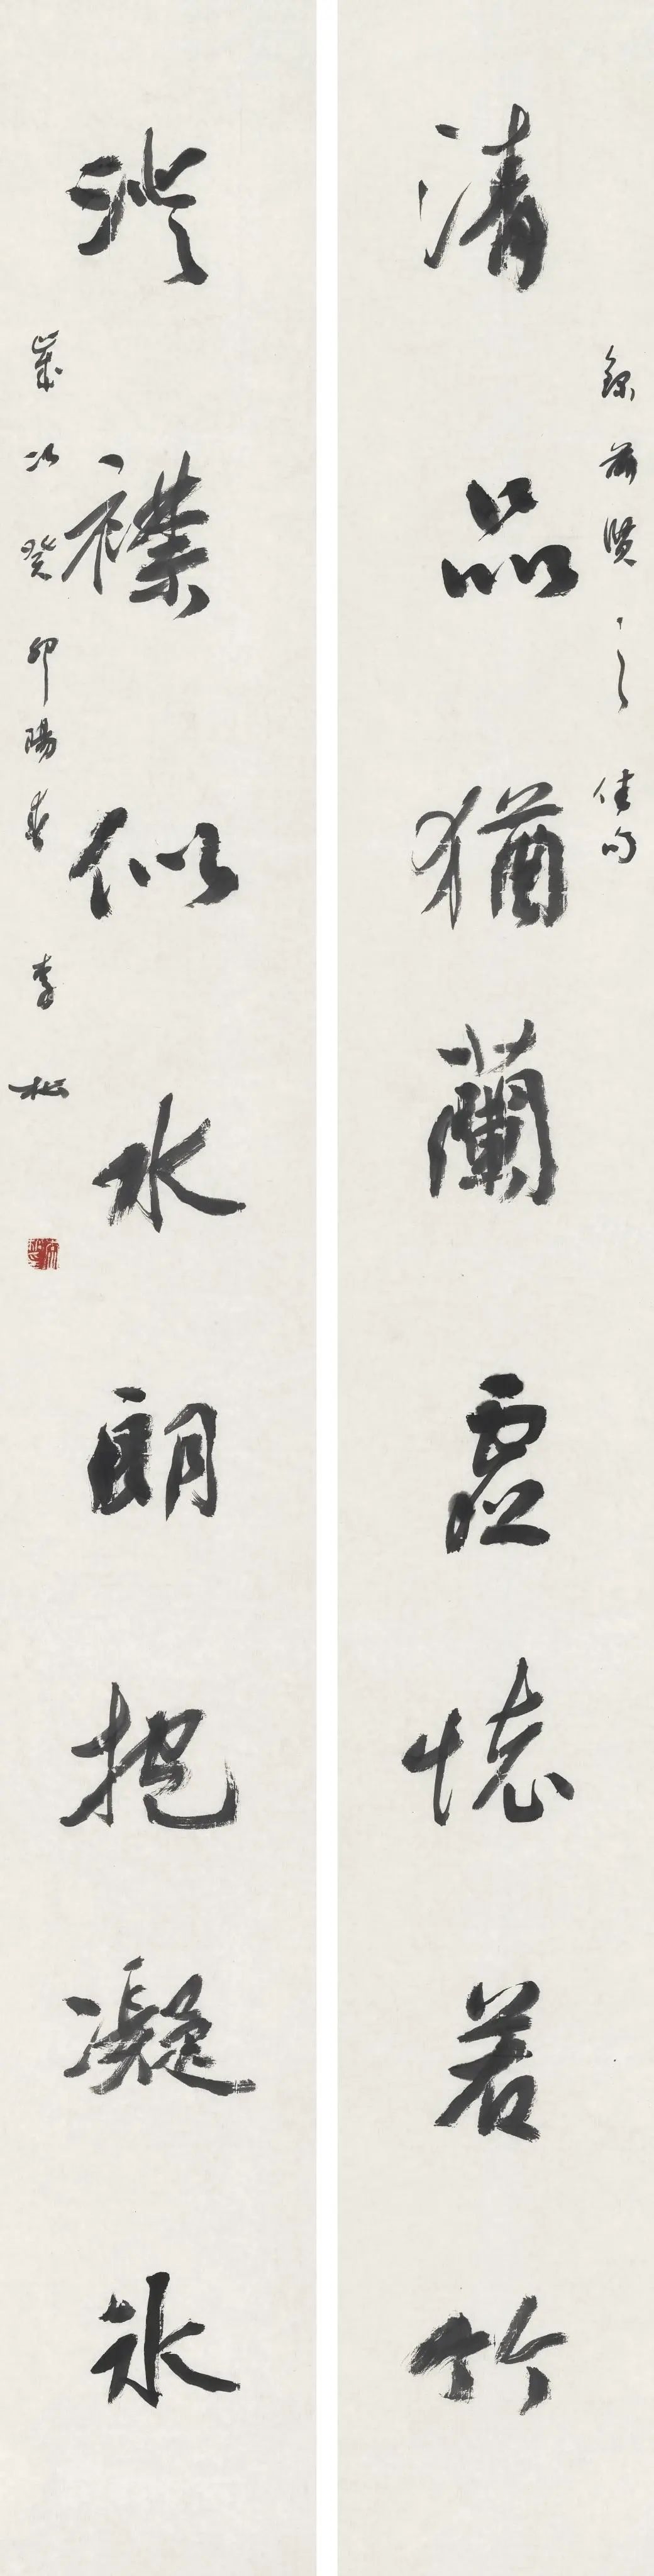 錄前賢之佳句
清品猶蘭虛懷若竹
澄襟似水朗抱凝冰
歲次癸卯陽春 李松